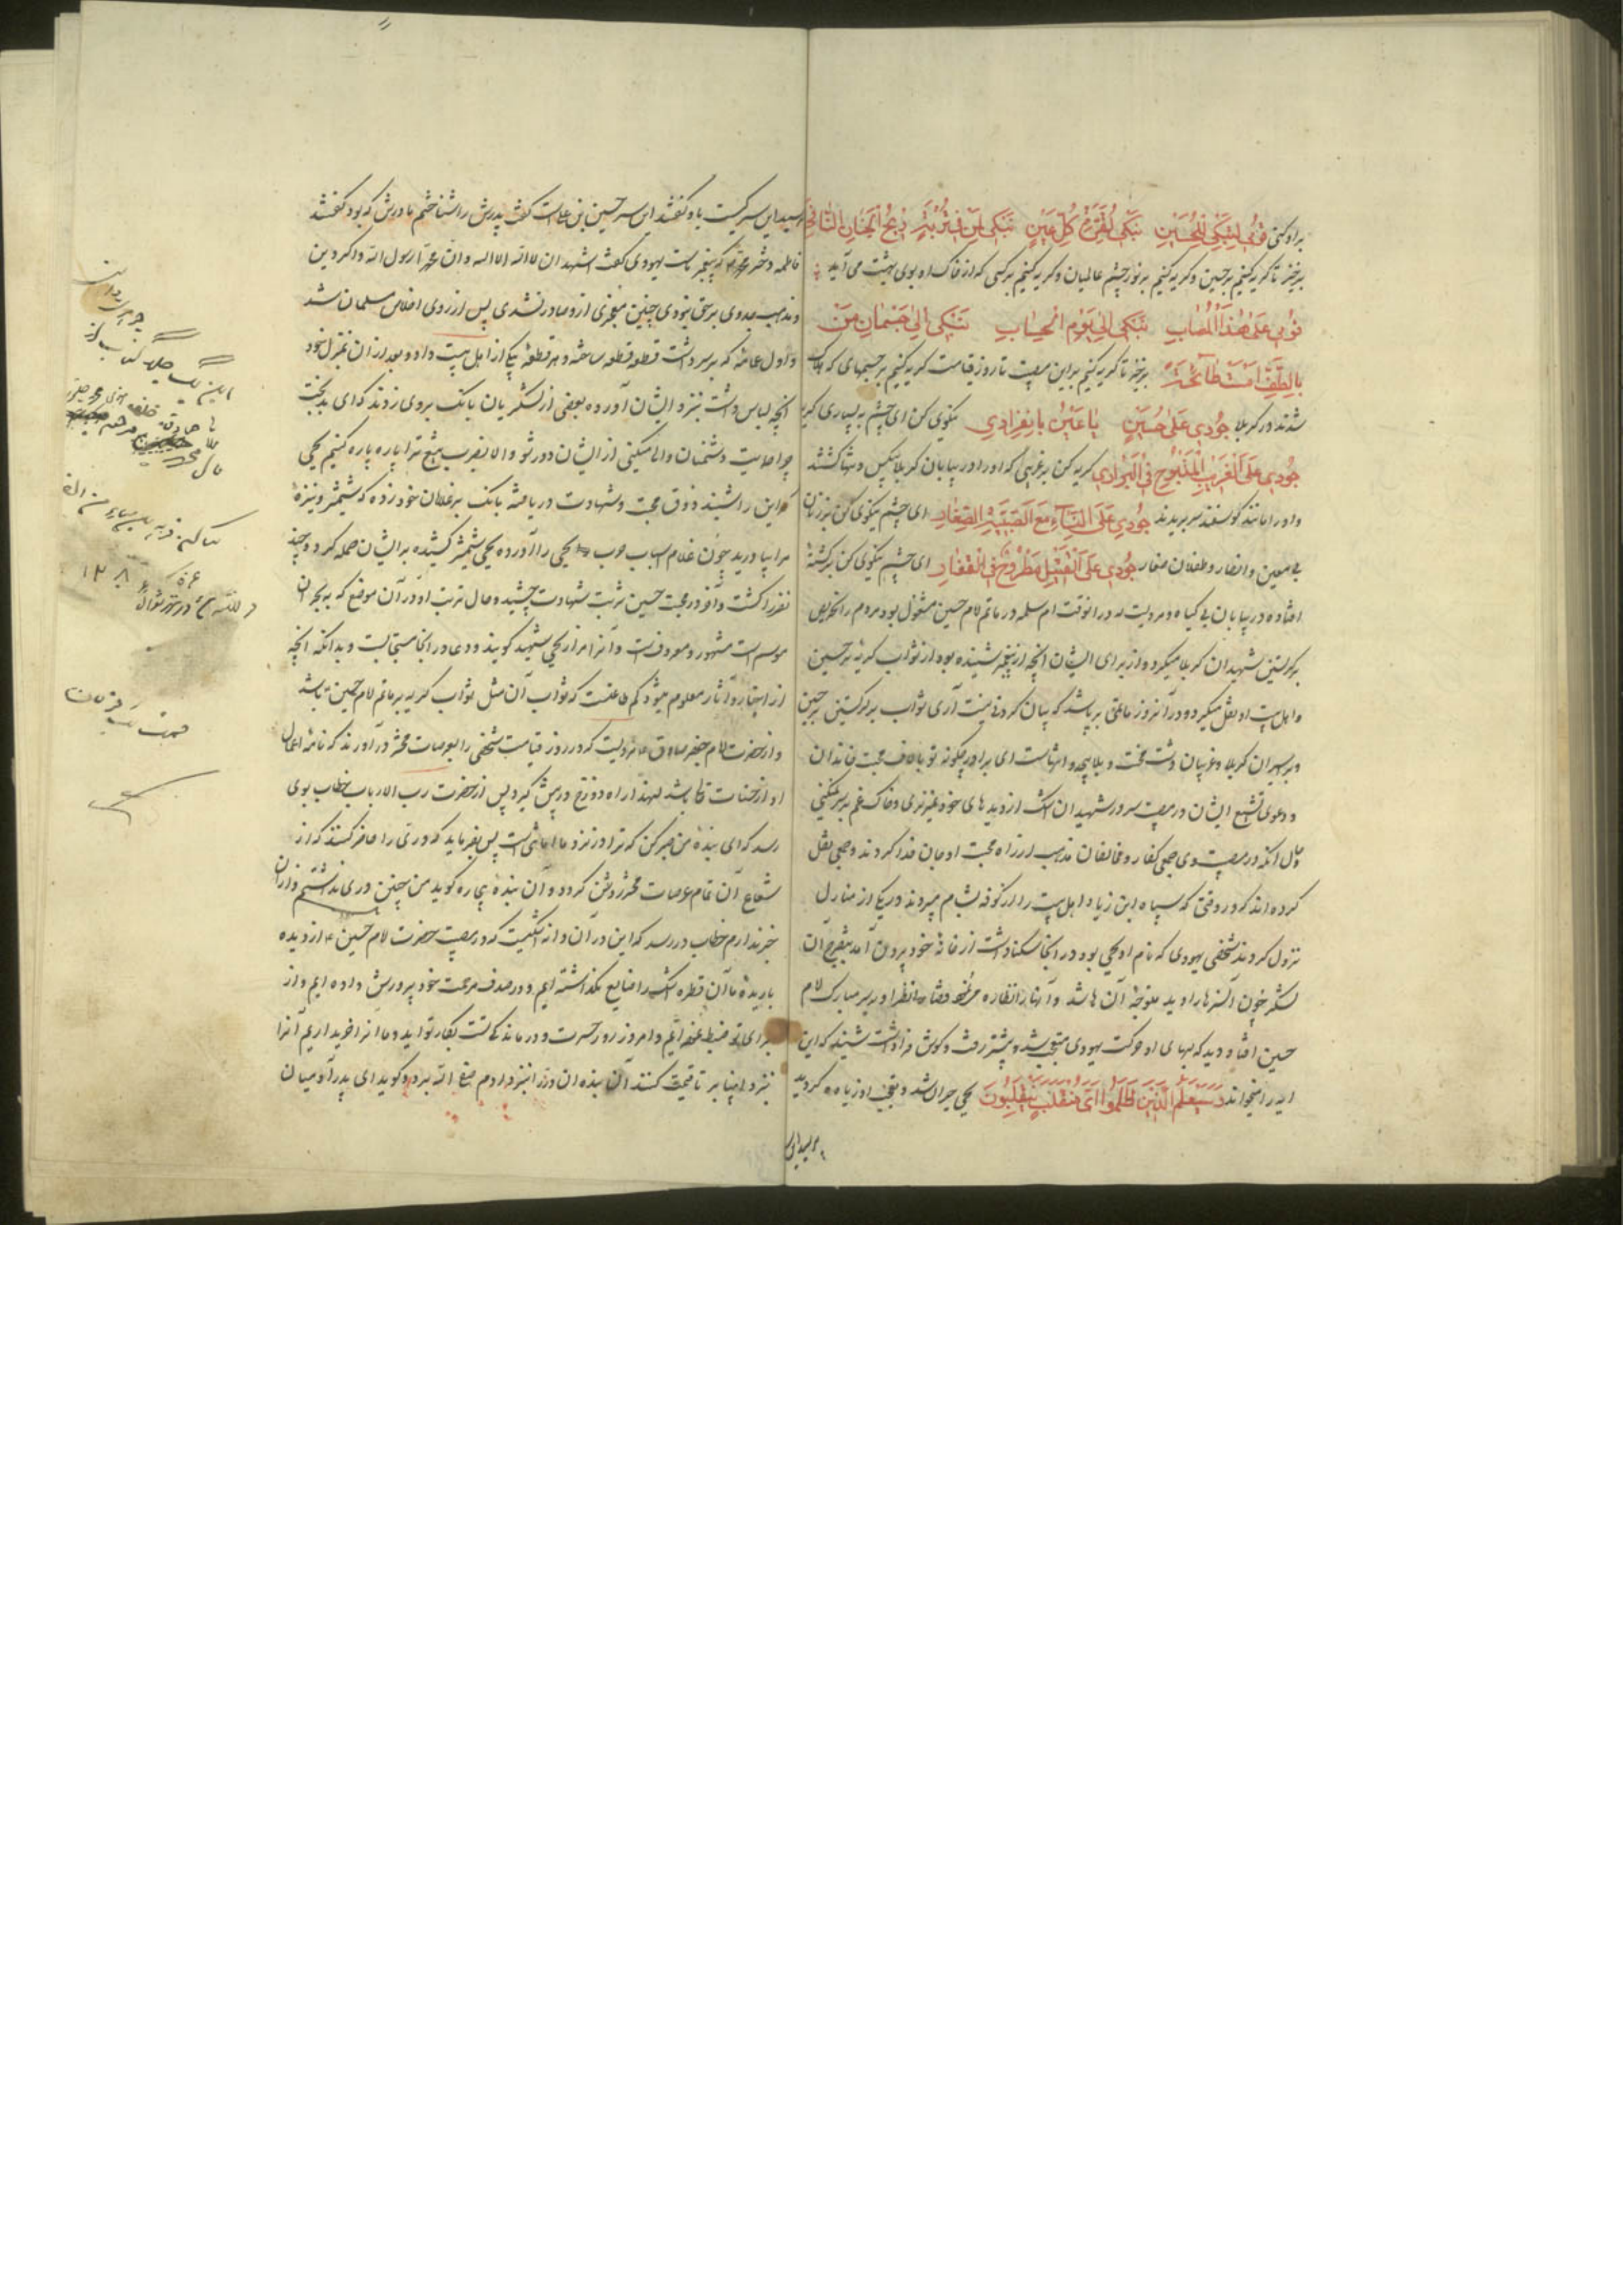 براوکنی قومی لنبکی للحسین نبکی لقرة کل عین نبکی لمن فی تربته ذبح الجنان
برخیز تا کریه کنیم بر حسین و کریه کنیم بر نور چشم عالمیان و کریه کنیم بر کسی که از خاک او بوی بهشت می آید
نوحی علی هذا المصاب نبکی الی یوم الحساب نبکی الی جسمان من
بالطف برخیز تا کریه کنیم براین مصیبت تا روز قیامت کریه کنیم بر جسمهای که هلاک
شدند در کربلا جودی علی حسین یا عین بانفرادی نیکوی کن ای چشم به بسیاری کریه
جودی علی الغریب المذبوح فی البوادی کریه کن بر غریبی که او را در بیابان کربلا بیکس و تنها کشتند
و او را مانند کوسفند سر بریدند جودی علی النساء مع الصبیة الصغار ای چشم نیکوی کن بر زنان
بی معین و انصار و طفلان صغار جودی علی القتیل مطروح فی القفار ای چشم نیکوی کن بر کشتهٔ
افتاده در بیابان بی کیاه و مرویست که در انوقت ام سلمه در ماتم امام حسین مشغول بود و مردم را تحریص
بر کریستن شهیدان کربلا میکرد و از برای ایشان آنچه از پیغمبر شنیده بود از ثواب کریه بر حسین
و اهل بیت او نقل میکرد و در آنروز ماتمی بر پا شد که بیان کردنی نیست آری ثواب بر کریستن بر حسین
و بر اسیران کربلا و غریبان دشت محنت و بلا بیحد و انتهاست ای برادر چکونه تو با لاف محبت خاندان
و دعوی تشیع ایشان در مصیبت سرور شهیدان اشک از دیدهای خود نمیریزی و خاک غم بر سر نمیکنی
و حال انکه در مصیبت وی جمعی کفار و مخالفان مذهب از راه محبت او جان فدا کردند و جمعی نقل
کرده اند که در وقتی که سپاه ابن زیاد اهل بیت را از کوفه بشام میبردند در یکی از منازل
نزول کردند شخصی یهودی که نام او یحیی بود در انجا سکنا داشت از خانهٔ خود بیرون آمد بتفرج آن
لشکر چون آن سرها را دید متوجهٔ آن ها شد و آنها را نظاره میکرد نظر او بر سر مبارک امام
حسین افتاد دید که لبهای او حرکت یهودی متعجب شد و پیشتر رفت و کوش فرا داشت شنید که این
ایه را میخواند و سیعلم الذین ظلموا ای منقلب ینقلبون یحیی حیران شد و تعجب او زیاده کردید
پرسید این
پرسید این سر کیست باو کفتند این سر حسین بن علی است کفت پدرش را شناختم مادرش که بود کفتند
فاطمه دختر محمد که پیغمبر ماست یهودی کفت اشهد ان لا اله الا الله وان محمدا رسول الله و اکر دین
و مذهب جد وی بر حق نبودی چنین معجزی از و صادر نشدی پس از روی اخلاص مسلمان شد
و اول عمامه که بر سر داشت قطعه قطعه ساخته و هر قطعهٔ بیکی از اهل بیت داد و بعد از ان بمنزل خود
آنچه لباس داشت بنزد ایشان آورده بعضی از لشکریان بانک بر وی زدند که ای بدبخت
چرا حمایت دشمنان والی میکنی از ایشان دور شو و الا بضرب تیغ ترا پاره پاره کنیم یحیی
که این را شنید ذوق محبت و شهادت دریافته بانک بر غلامان خود زده که شمشیر و نیزهٔ
مرا بیاورید چون غلام اسباب حرب یحیی را آورده یحیی شمشیر کشیده بر ایشان حمله کرد و چند
نفر را کشت و آخر در محبت حسین شربت شهادت چشید و حال تربت او در آن موضع که به بحران
موسم است مشهور و معروفست و آنرا مزار یحیی شهید کویند و دعا در انجا مستجابست و بدانکه آنچه
از اخبار و آثار معلوم میشود کم طاعتست که ثواب آن مثل ثواب کریه بر ماتم امام حسین باشد
و از حضرت امام جعفر صادق مرویست که در روز قیامت شخصی را بعرصات محشر در آورند که نامه اعمال
او از حسنات خالی باشد لهذا راه دوزخ در پیش کیرد پس از حضرت رب الارباب خطاب بوی
رسد که ای بندهٔ من صبر کن که ترا در نزد ما امانتی است پس بفرماید که دری را حاضر کنند که از
شعاع آن تمام عرصات محشر روشن کردد و آن بندهٔ بیچاره کوید من چنین دری نداشتم و از ان
خبر ندارم خطاب در رسد که این در آن دانه اشکیست که در مصیبت حضرت امام حسین از دیده
باریدهٔ ما آن قطره اشک را ضایع نکذاشته ایم و در صدف مرحمت خود پرورش داده ایم و از
برای تو ضبط نموده ایم و امروز روز حسرت و درماندکی تست بکار تو آید و ما انرا خریداریم آنرا
بنزد انبیا بر تا قیمت کنند آن بنده ان در را بنزد ادم صفی الله برد و کوید ای پدر آدمیان
این یک جلد کتاب از
ملا محمد